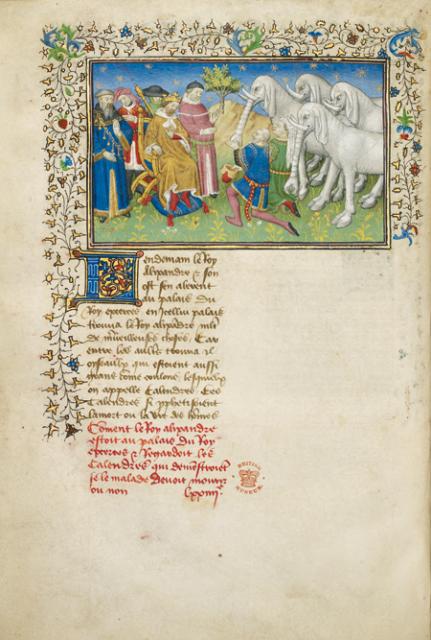 Lendemain le Roy
Alixandre & son
ost sen alerent
au palais du
Roy exerces en icellui palais
trouua le Roy alixandre mlt
de merueilleuses choses Car
entre les aultres trouua il
oyseaulx qui estoient aussi
grans come coulons lesquieulx
on appelle Calendres Ces
Calendres si prophetisoient
la mort ou la vie des homes
Coment le Roy alixandre
estoit au palais du Roy
exerces & Regardoit les
Calendres qui demostroiet
se le malade deuoit mourir
ou non lxxiiii
BRITISH
MUSEUM